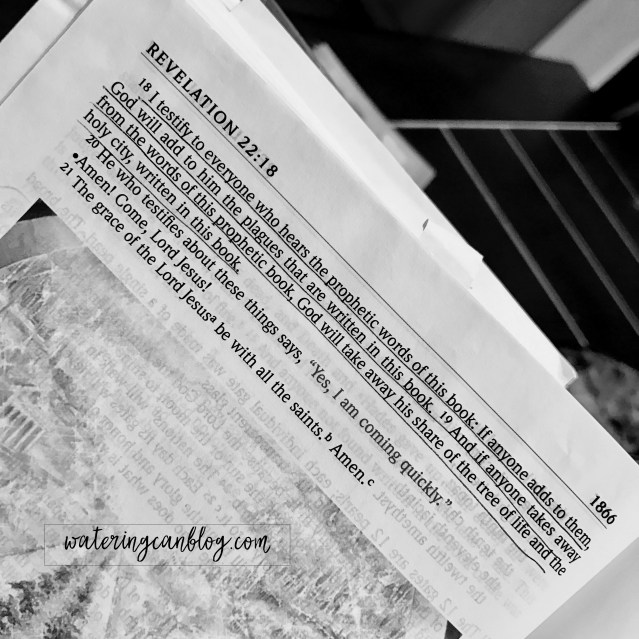 REVELATION 22:18
1866
18 I testify to everyone who hears the prophetic words of this book: If anyone adds to them,
God will add to him the plagues that are written in this book. 19 And if anyone takes away
from the words of this prophetic book, God will take away his share of the tree of life and the
holy city, written in this book.
20 He who testifies about these things says, “Yes, I am coming quickly.”
•Amen! Come, Lord Jesus!
21 The grace of the Lord Jesusᵃ be with all the saints.ᵇ Amen.ᶜ
wateringcanblog.com